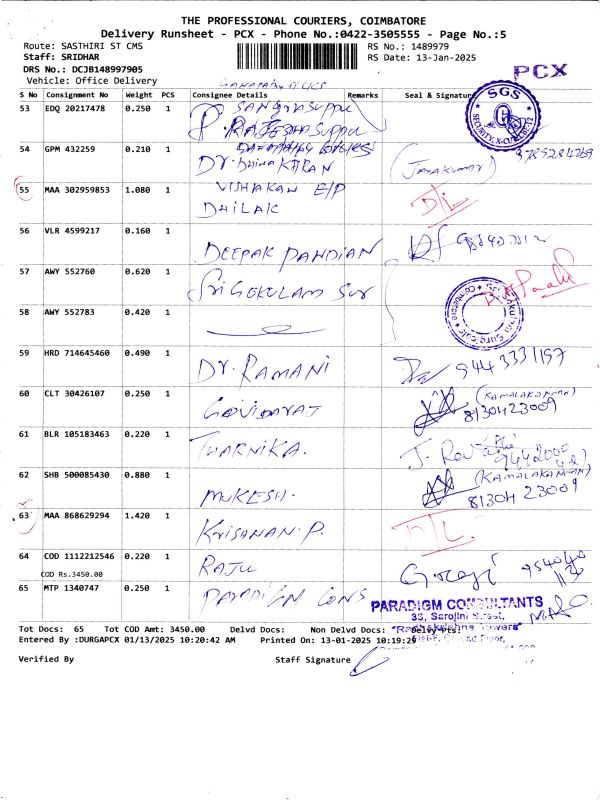 THE PROFESSIONAL COURIERS, COIMBATORE
Delivery Runsheet - PCX - Phone No.:0422-3505555 - Page No.:5
Route: SASTHIRI ST CMS RS No.: 1489979
Staff: SRIDHAR RS Date: 13-Jan-2025
DRS No.: DCJB148997905
PCX
Vehicle: Office Delivery
S No Consignment No Weight PCS Consignee Details Remarks Seal & Signature
53 EDQ 20217478 0.250 1
SGS
54 GPM 432259 0.210 1 (Jayakumar)
55 MAA 302959853 1.080 1 D/L
56 VLR 4599217 0.160 1 DEEPAK PANDIAN
57 AWY 552760 0.620 1 Sri GOKULAM Sur
58 AWY 552783 0.420 1
59 HRD 714645460 0.490 1 Dr. RAMANI 9443331197
60 CLT 30426107 0.250 1 GOVIDARAJ (KAMALAKANNAN)
8130423009
61 BLR 105183463 0.220 1 THARNIKA.
62 SHB 500085430 0.880 1 MUKESH. (KAMALAKANNAN)
81304 23009
63 MAA 868629294 1.420 1 KRISHNAN.P. D/L
64 COD 1112212546 0.220 1 RAJU
COD Rs.3450.00
65 MTP 1340747 0.250 1 PARADIGM CONS
PARADIGM CONSULTANTS
33, Sarojini Street,
Tot Docs: 65 Tot COD Amt: 3450.00 Delvd Docs: Non Delvd Docs: Delvy Pts:
"Radhakrishna Towers"
Entered By :DURGAPCX 01/13/2025 10:20:42 AM Printed On: 13-01-2025 10:19:25
Verified By Staff Signature